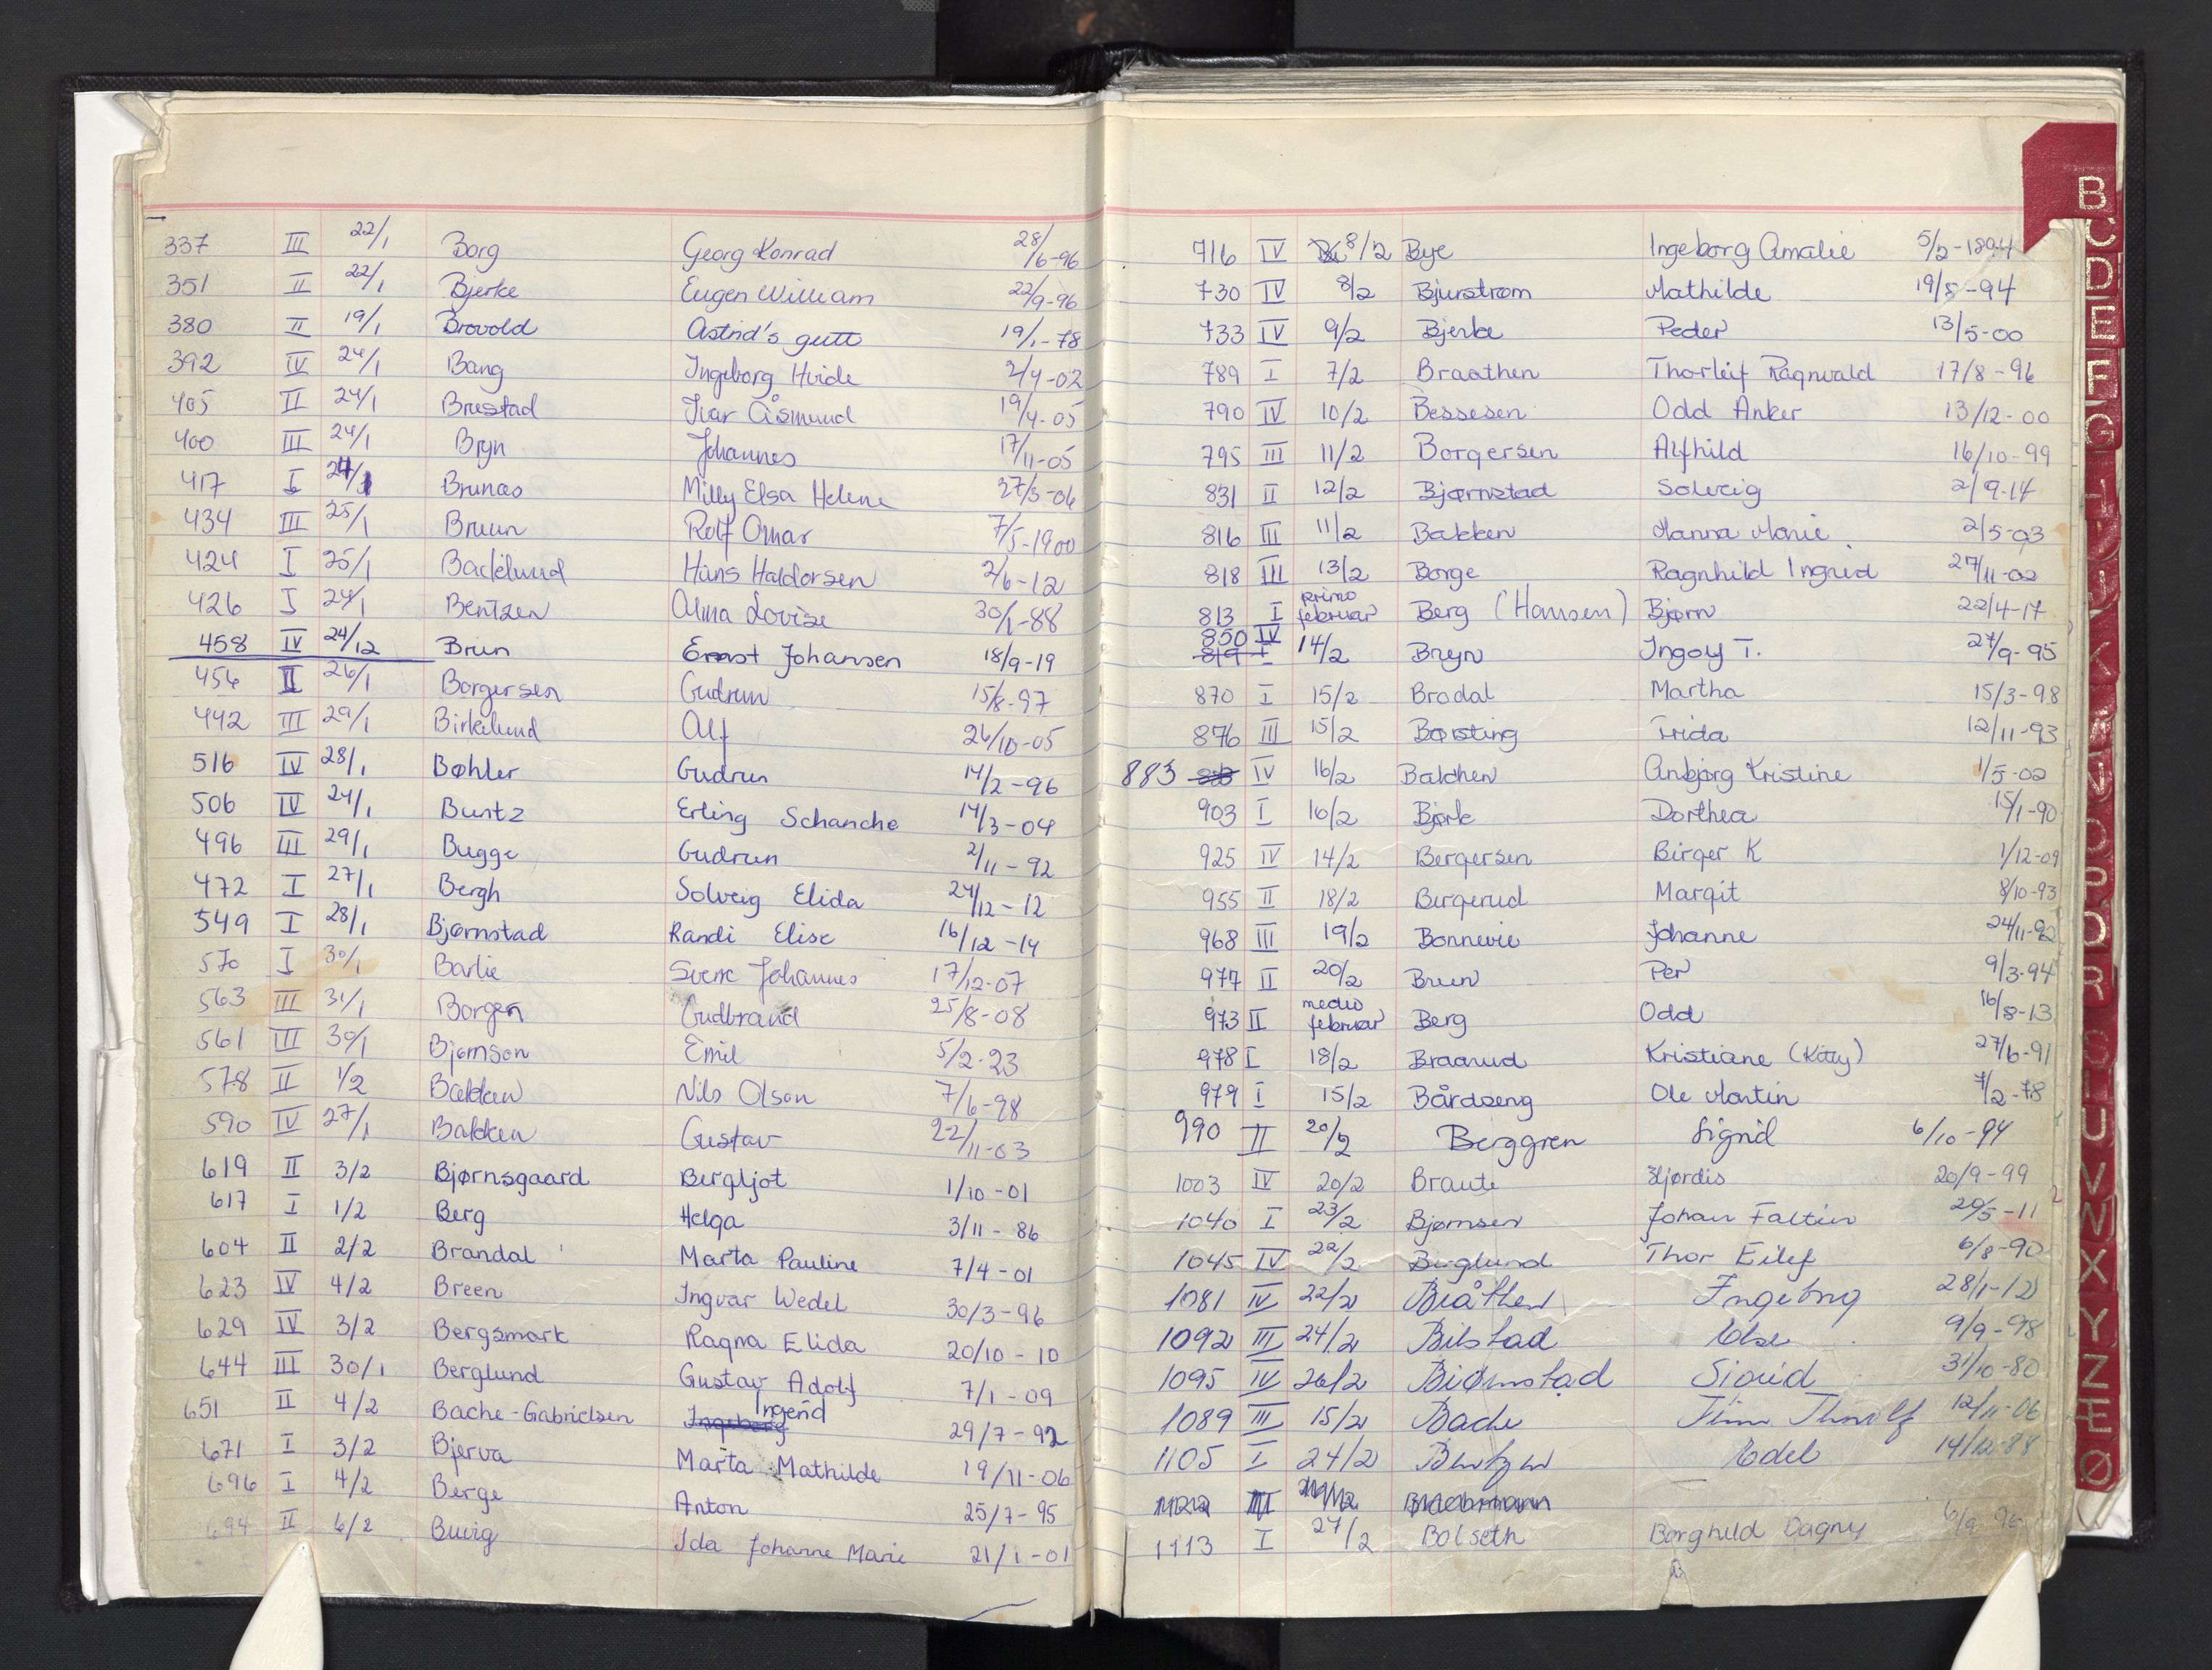 337 III 22/1 Borg Georg Konrad 28/6-96
351 II 22/1 Bjerke Eugen William 22/9-96
380 II 19/1 Brovold Astrid's gutt 19/1-78
392 IV 24/1 Bang Ingeborg Hvide 2/4-02
405 II 24/1 Brestad Ivar Åsmund 19/4-05
400 III 24/1 Bryn Johannes 17/11-05
417 I 24/1 Brunæs Milly Elsa Helene 27/3-06
434 III 25/1 Bruun Rolf Omar 7/5-1900
424 I 25/1 Backelund Hans Haldorsen 2/6-12
426 I 24/1 Bentzen Alma Lovise 30/1-88
458 IV 24/12 Brun Ernst Johansen 18/9-19
456 II 26/1 Borgersen Gudrun 15/8-97
442 III 29/1 Birkelund Alf 26/10-05
516 IV 28/1 Bøhler Gudrun 14/2-96
506 IV 24/1 Buntz Erling Schanche 14/3-04
496 III 29/1 Bugge Gudrun 2/11-92
472 I 27/1 Bergh Solveig Elida 24/12-12
549 I 28/1 Bjørnstad Randi Elise 16/12-14
570 I 30/1 Barlie Sverre Johannes 17/12-07
563 III 31/1 Borgen Gudbrand 25/8-08
561 III 30/1 Bjørnson Emil 5/2-23
578 II 1/2 Bakken Nils Olson 7/6-98
590 IV 27/1 Bakken Gustav 22/11-03
619 II 3/2 Bjørnsgaard Bergljot 1/10-01
617 I 1/2 Berg Helga 3/11-86
604 II 2/2 Brandal Marta Pauline 7/4-01
623 IV 4/2 Breen Ingvar Wedel 30/3-96
629 IV 3/2 Bergsmark Ragna Elida 20/10-10
644 III 30/1 Berglund Gustav Adolf 7/1-09
651 II 4/2 Bache-Gabrielsen Ingeborg Ingerid 29/7-92
671 I 3/2 Bjerva Marta Mathilde 19/11-06
696 I 4/2 Berge Anton 25/7-95
694 II 6/2 Buvig Ida Johanne Marie 21/1-01
716 IV 8/2 Bye Ingeborg Amalie 5/2-1894
730 IV 8/2 Bjurstrøm Mathilde 19/8-94
733 IV 9/2 Bjerke Peder 13/5-00
789 I 7/2 Braathen Thorleif Ragnvald 17/8-96
790 IV 10/2 Bessesen Odd Anker 13/12-00
795 III 11/2 Borgersen Alfhild 16/10-99
831 II 12/2 Bjørnstad Solveig 2/9-14
816 III 11/2 Bakken Hanna Marie 2/5-03
818 III 13/2 Borge Ragnhild Ingrid 27/11-02
813 I primo februar Berg (Hansen) Bjørn 22/4-17
850 IV
819 I 14/2 Bryn Ingolf T. 27/9-95
870 I 15/2 Brodal Martha 15/3-98
876 III 15/2 Børsting Frida 12/11-93
883 IV 16/2 Balchen Anbjørg Kristine 1/5-02
903 I 16/2 Bjørk Dorthea 15/1-90
925 IV 14/2 Bergersen Birger K 1/12-09
955 II 18/2 Bergerud Margit 8/10-93
968 III 19/2 Bonnevie Johanne 24/11-92
977 II 20/2 Bruun Per 9/3-94
973 II medio februar Berg Odd 16/8-13
978 I 18/2 Braarud Kristiane (Kitty) 27/6-91
979 I 15/2 Bårdseng Ole Martin 7/2-78
990 II 20/2 Berggren Sigrid 6/10-94
1003 IV 20/2 Braute Hjørdis 20/9-99
1040 I 23/2 Bjørnsen Johan Faltin 20/5-11
1045 IV 22/2 Berglund Thor Eilef 6/8-90
1081 IV 22/2 Bråthen Ingeborg 28/1-12
1092 III 24/2 Bilstad Else 9/9-98
1095 IV 26/2 Bjørnstad Sigrid 31/10-80
1089 III 15/2 Bache Finn Thorolf 12/11-06
1105 I 24/2 Bentzen Edel 14/12-88
1122 III
1113 I 27/2 Bolseth Borghild Dagny 6/9-96
B
C
D
E
F
G
I
J
K
N
O
P
R
S
T
U
V
W
X
Y
Z
Æ
Ø